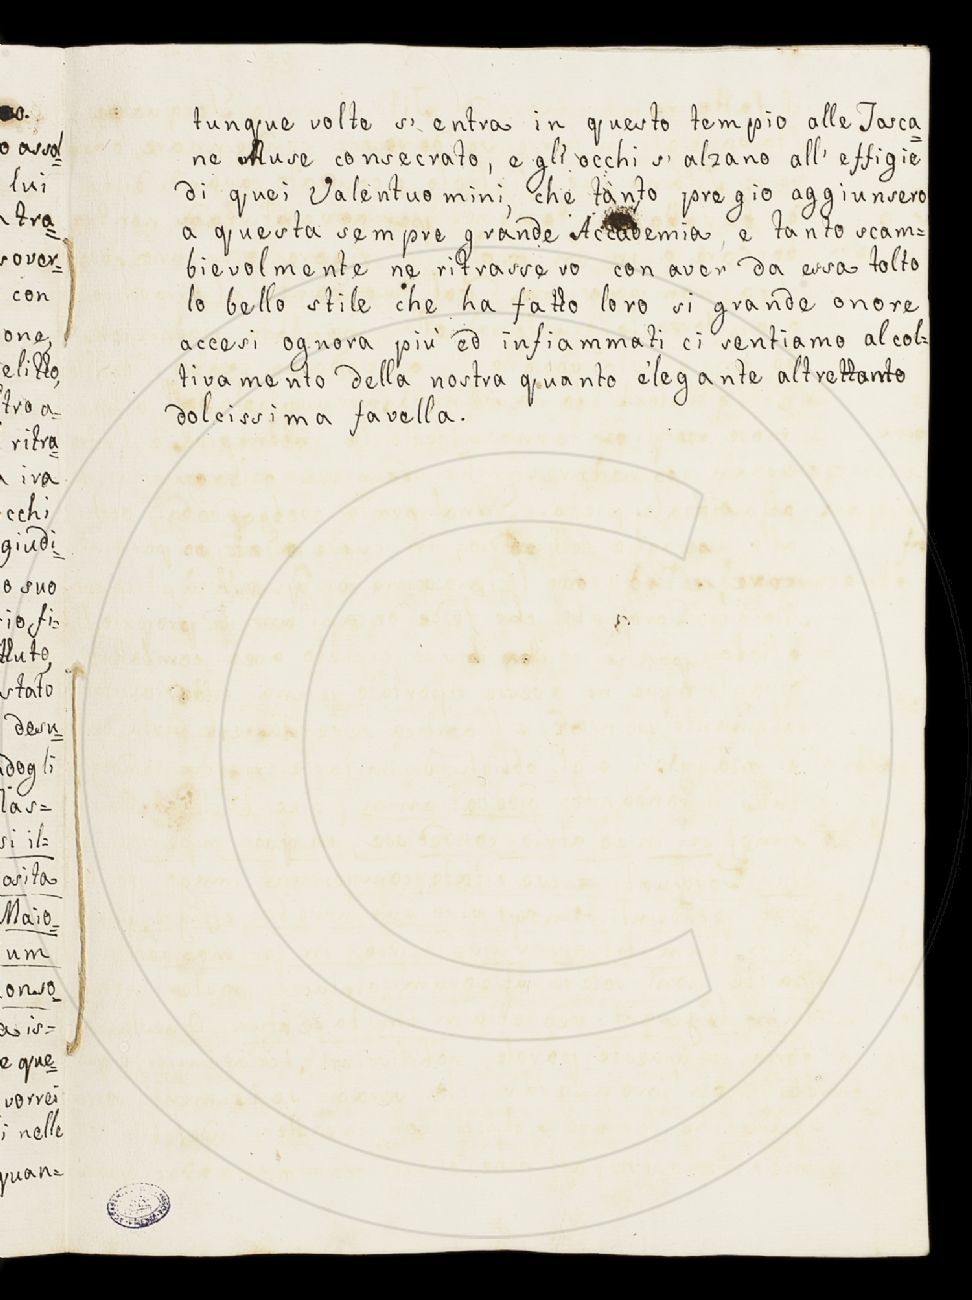 no.
o assa=
lui
n tra=
sover=
con
one,
elitto,
tro a=
ritra=
a ira
cchi
giudi=
o suo
rio fi=
lluto,
stato
desu=
adogli
las=
si il=
osita
Maio=
um
onso=
a is=
e que=
vorrei
i nelle
quan=
tunque volte s' entra in questo tempio alle Tosca=
ne Muse consecrato, e gl' occhi s' alzano all' effigie
di quei Valentuomini, che tanto pregio aggiunsero
a questa sempre grande Accademia, e tanto scam=
bievolmente ne ritrassero con aver da essa tolto
lo bello stile che ha fatto loro si grande onore
accesi ognora più ed infiammati ci sentiamo al col=
tivamento della nostra quanto elegante altrettanto
dolcissima favella.